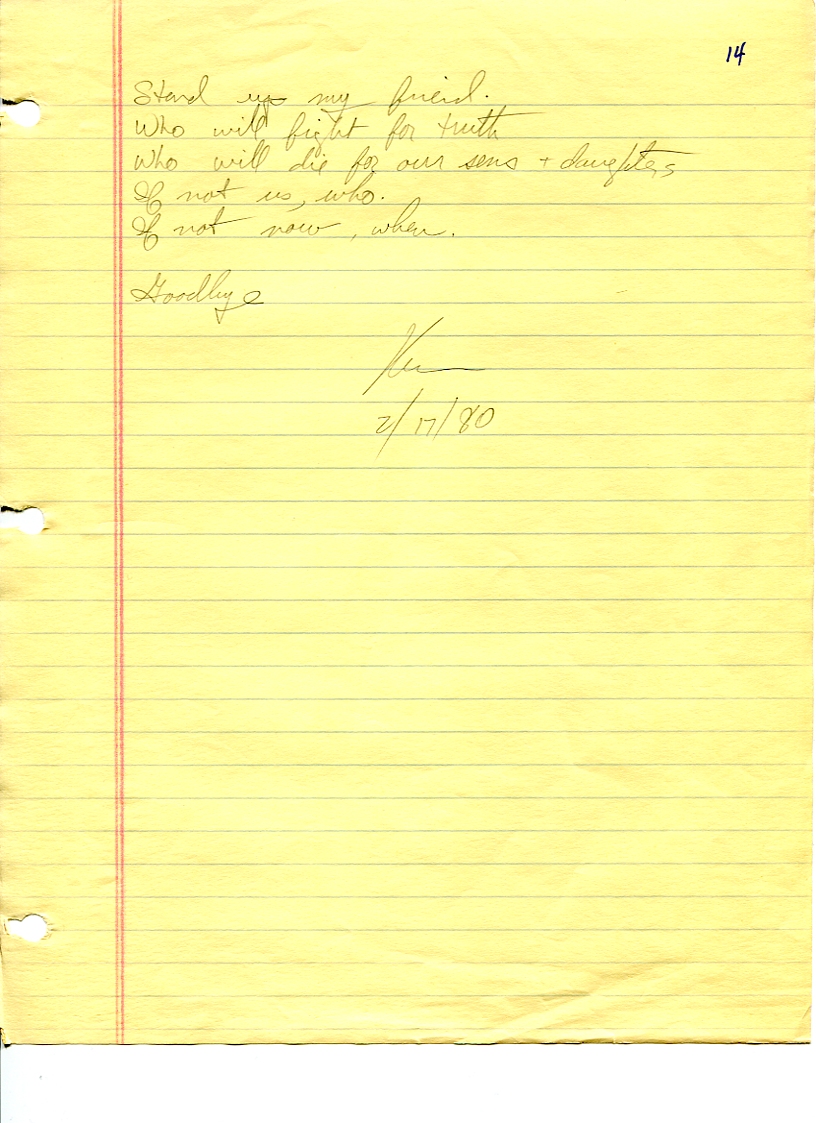 14
Stand up my friend.
Who will fight for truth
Who will die for our sons + daughters
If not us, who.
If not now, when.
Goodbye
2/17/80